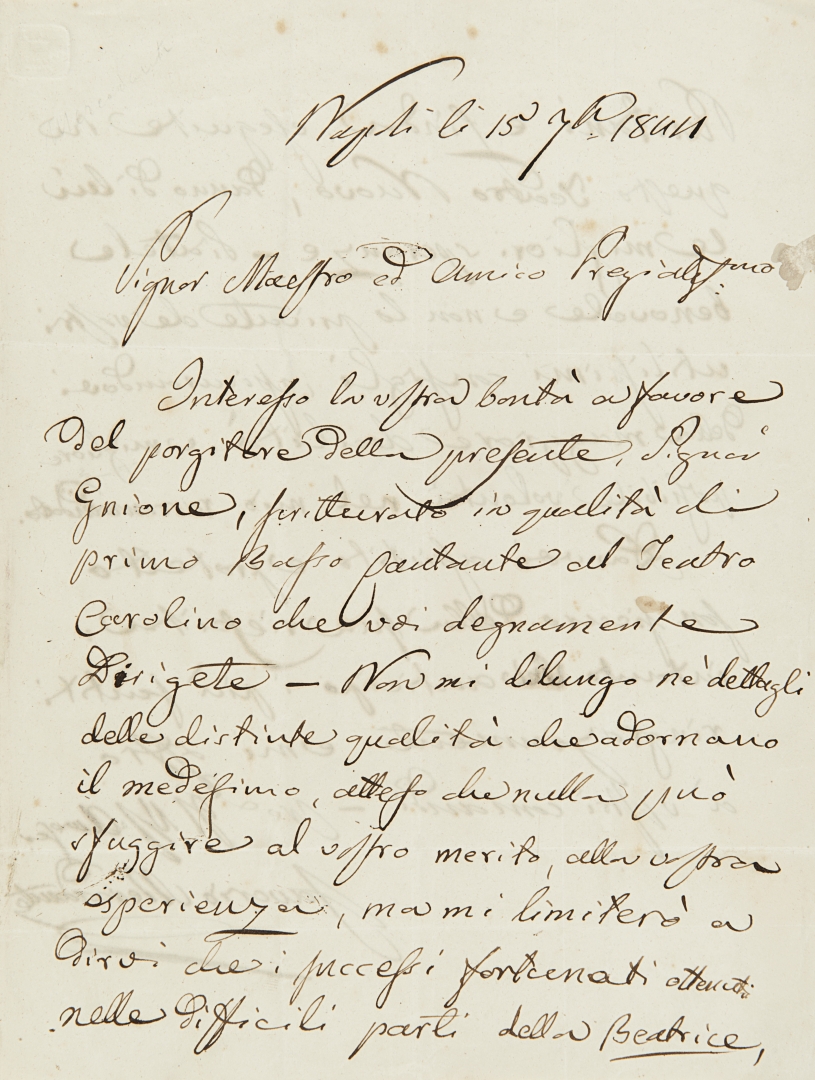 Napoli li 15 7bre 1844
Signor Maestro ed Amico Pregiatissmo
Interesso la vostra bontà a favore
del porgitore della presente, Signor
Gnione, scritturato in qualità di
primo Basso Cantante al Teatro
Carolino che voi degnamente
Dirigete — Non mi dilungo ne' dettagli
delle distinte qualità che adornano
il medesimo, atteso che nulla può
sfuggire al vostro merito, alla vostra
esperienza, ma mi limiterò a
dirvi che i successi fortunati ottenuti
nelle difficili parti della Beatrice,